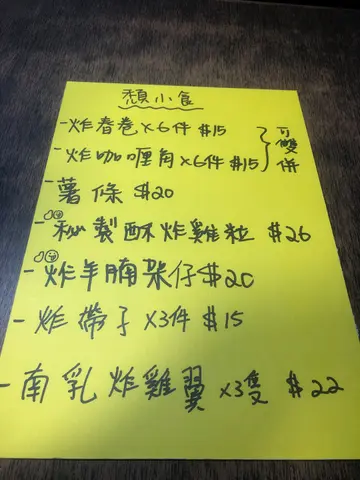 頹小食
-炸春卷x6件 $15
-炸咖喱角x6件 $15
可雙併
-薯條 $20
-秘製酥炸雞粒 $26
-炸羊腩架仔 $20
-炸帶子x3件 $15
-南乳炸雞翼x3隻 $22